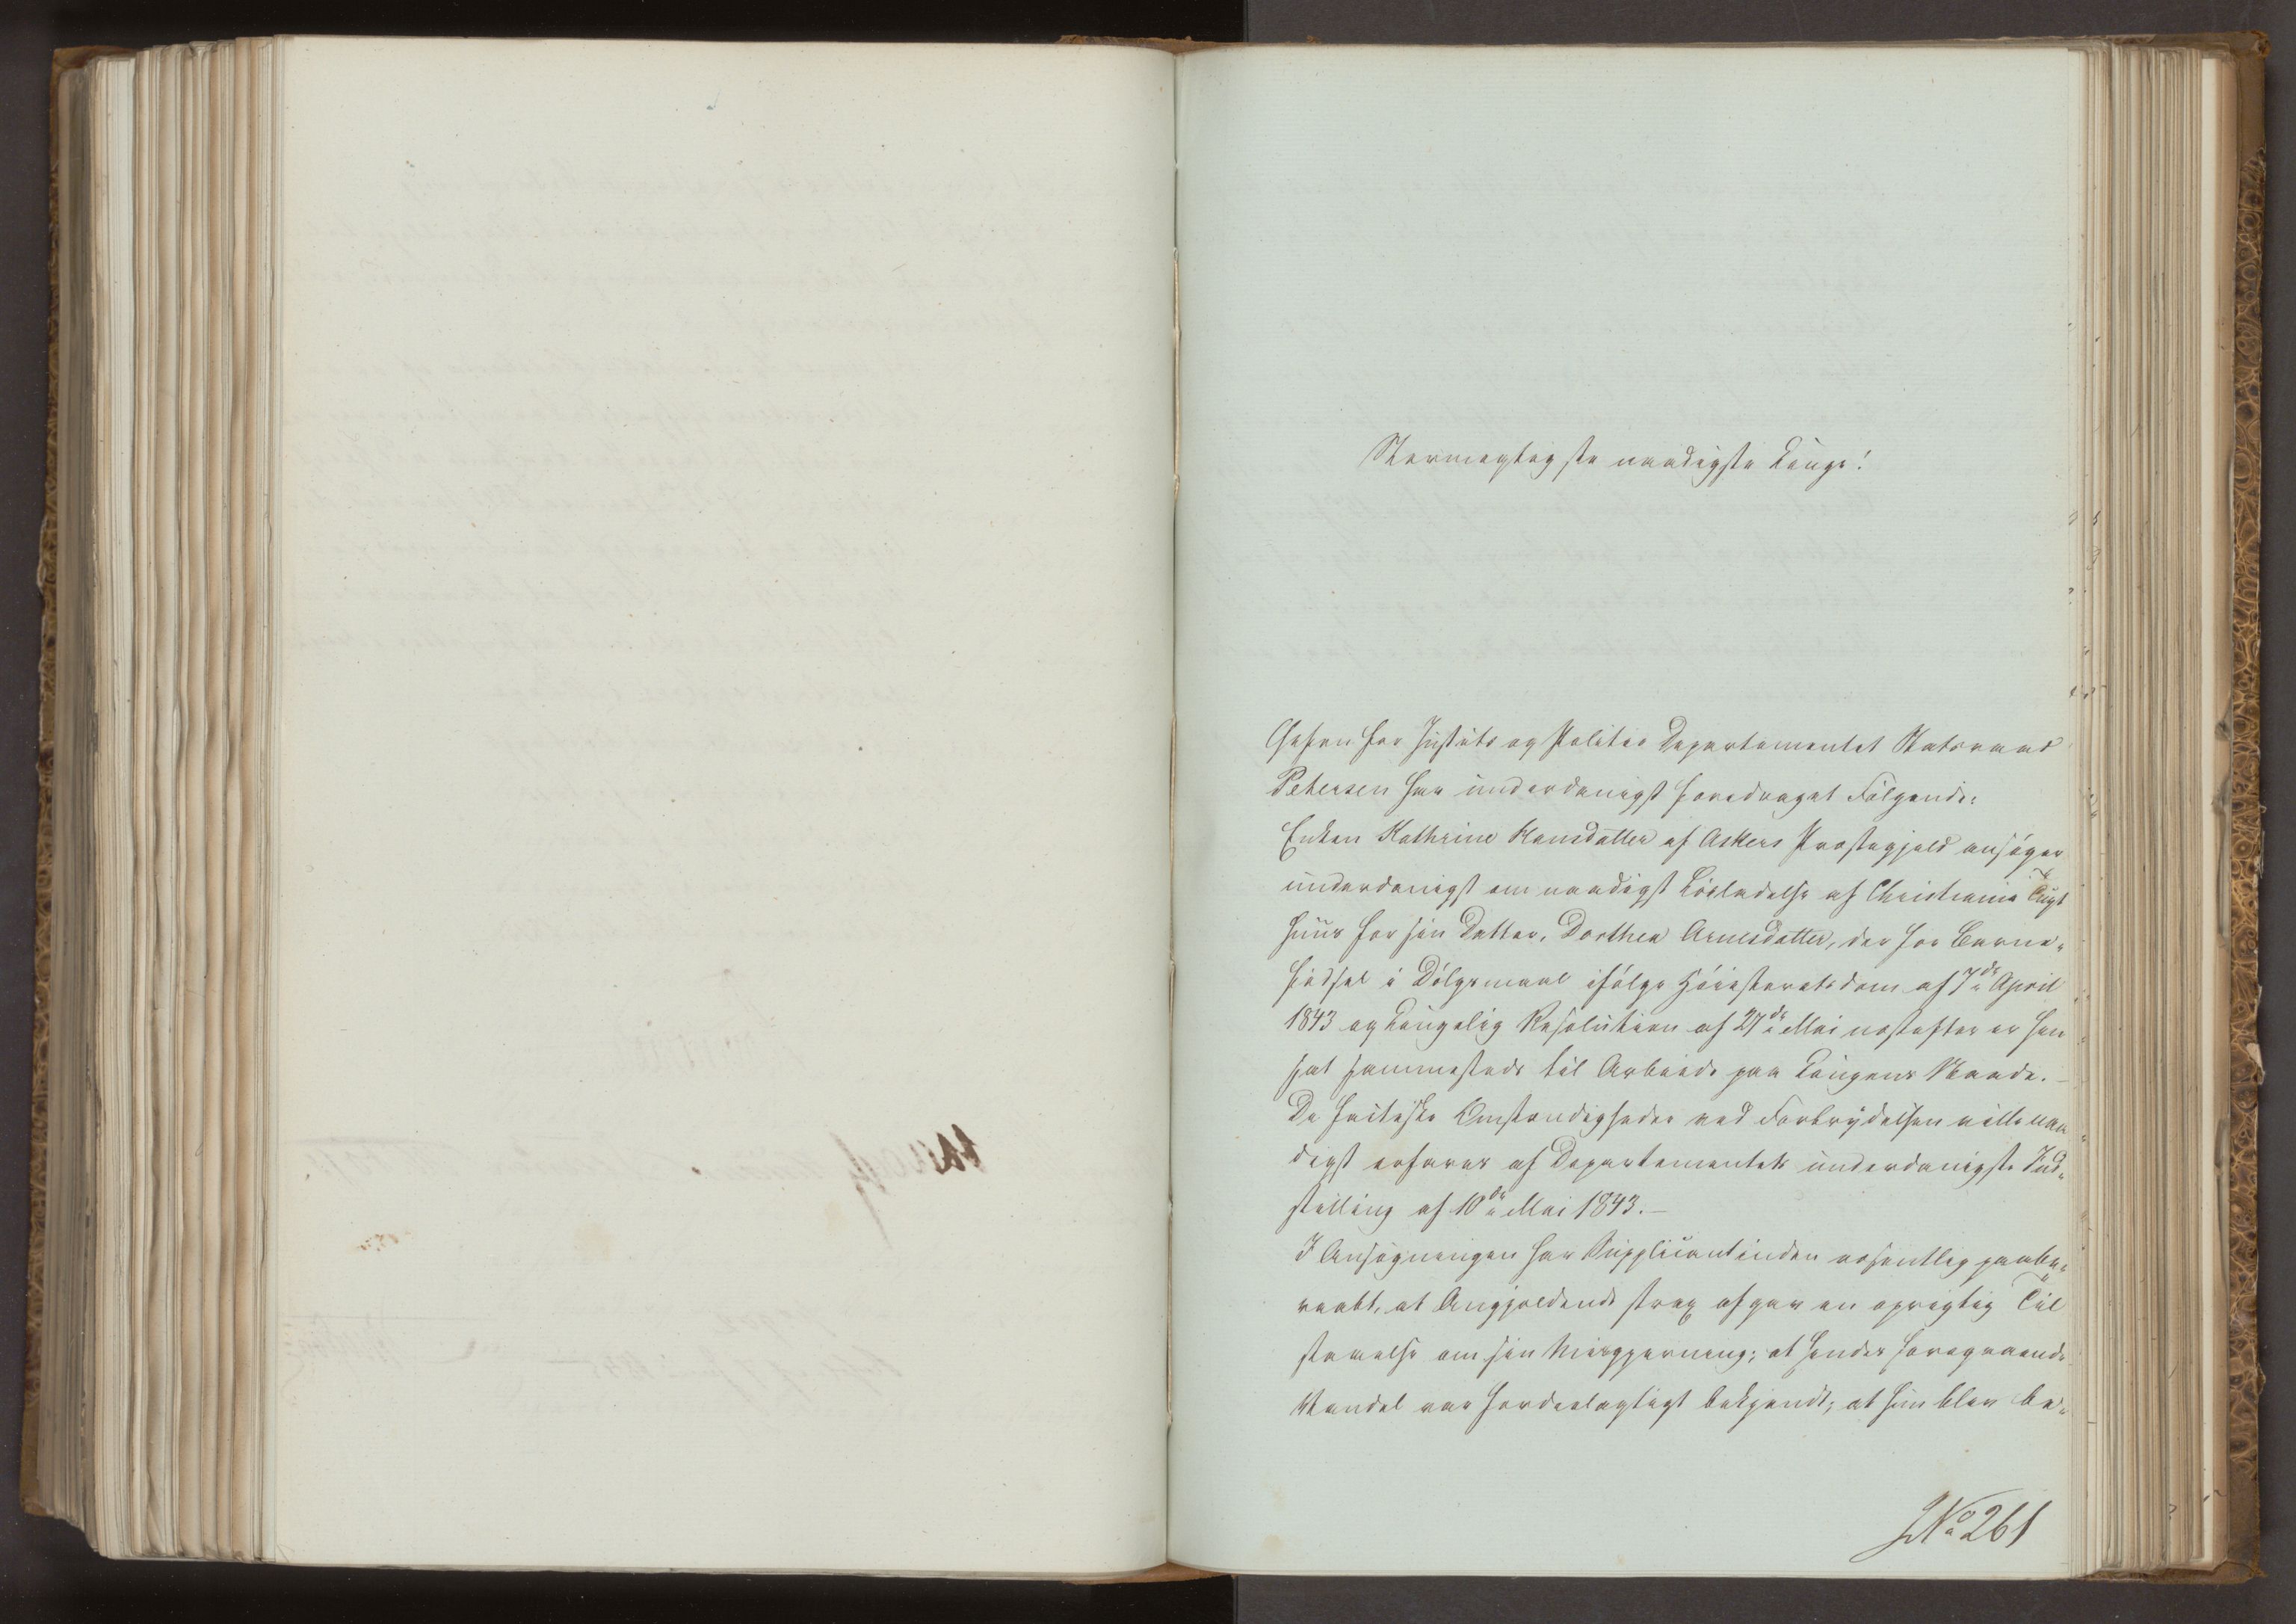 Stormægtigste naadigste Konge!
Chefen for Justits og Politie Departementet Statsraad
Petersen har underdanigst foredraget Følgende:
Enken Kathrine Hansdatter af Askers Prestegjeld ansøger
underdanigst om naadigst Løsladelse af Christiania Tugt
huus for sin Datter, Dorthea Arnesdatter, der for Barne-
fødsel i Dølgsmaal ifølge Høiesteretsdom af 7de April
1843 og Kongelig Resolution af 27de Mai næstefter er hen
sat sammesteds til Arbeide paa Kongens Naade. -
De factiske Omstændigheder ved Forbrydelsen ville naa
digst erfares af Departementets underdanigste Ind-
stilling af 10de Mai 1843. -
I Ansøgningen har Supplicantinden væsentlig paabe-
raabt, at Angjeldende strax afgav en oprigtig Til
staaelse om sin Misgjerning; at hendes foregaaende
Vandel var fordeelagtigt bekjendt; at hun blev be-
JNo 261